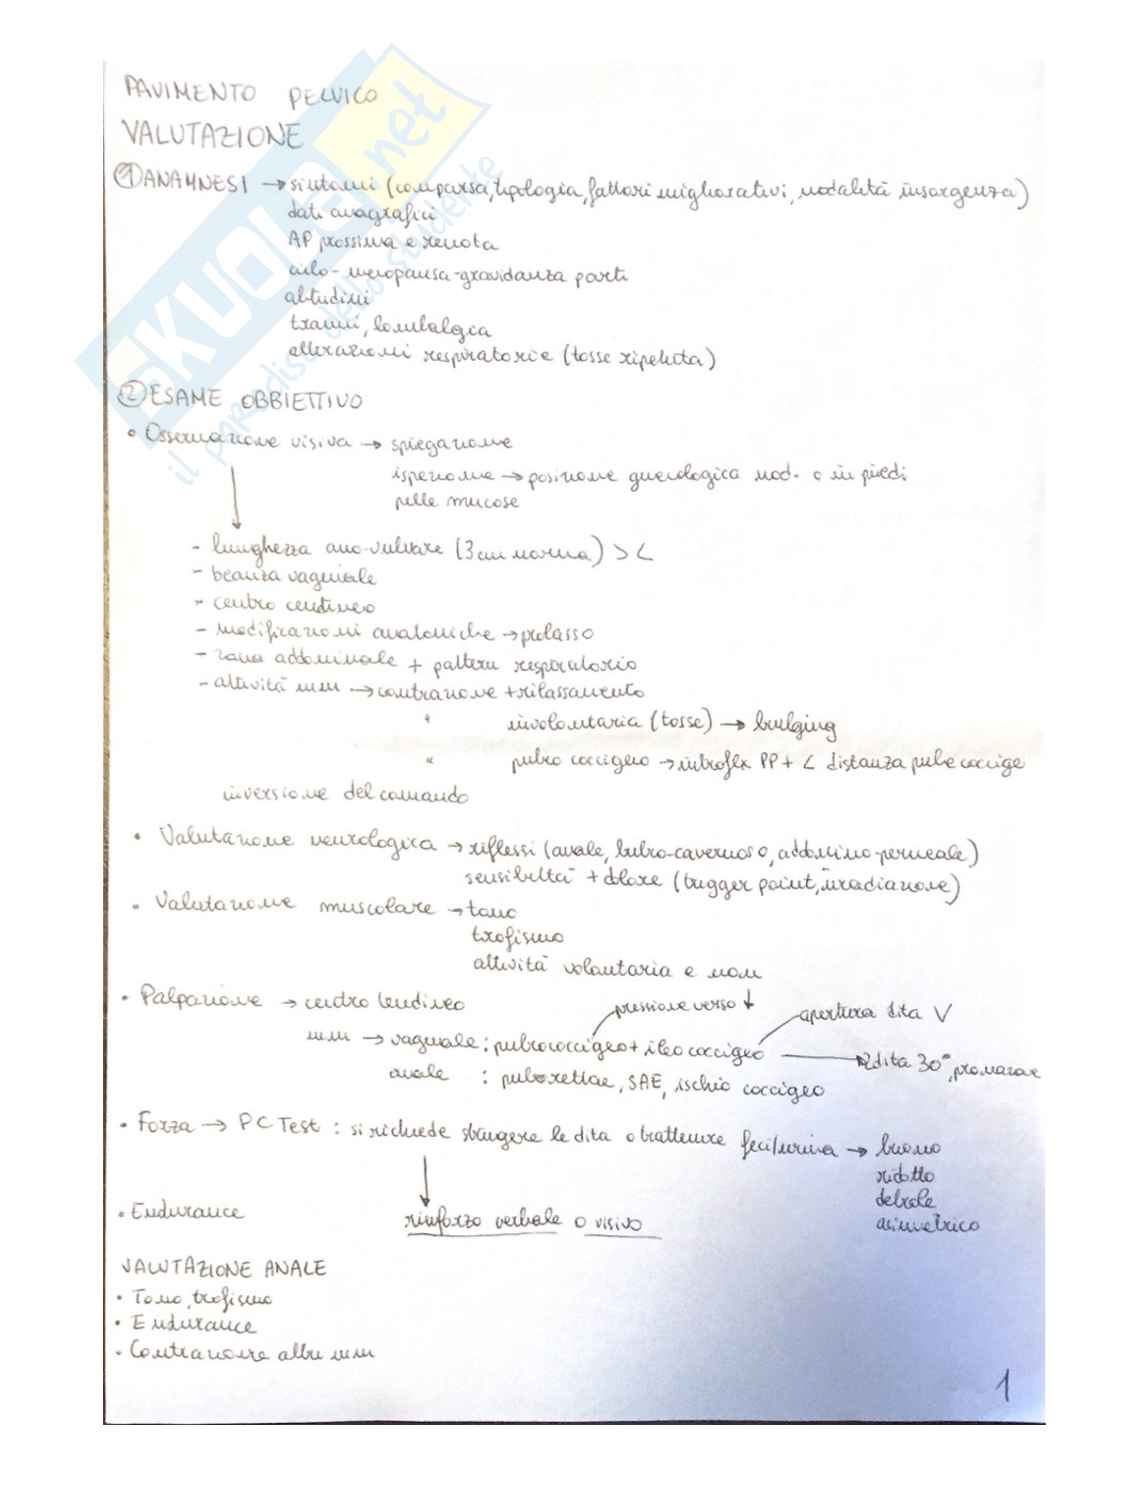 PAVIMENTO PELVICO
VALUTAZIONE
① ANAMNESI → sintomi (comparsa, tipologia, fattori migliorativi, modalità insorgenza)
dati anagrafici
AP prossima e remota
ciclo-menopausa-gravidanza parti
abitudini
traumi, lombalgia
alterazioni respiratorie (tosse ripetuta)
② ESAME OBBIETTIVO
• Osservazione visiva → spiegazione
ispezione → posizione ginecologica mod. o in piedi
pelle mucose
- lunghezza ano-vulvare (3 cm norma) > <
- beanza vaginale
- centro tendineo
- modificazioni anatomiche → prolasso
- zona addominale + pattern respiratorio
- attività mm → contrazione + rilassamento
" involontaria (tosse) → bulging
" pubo coccigeo → introflex PP + < distanza pube coccige
inversione del comando
• Valutazione neurologica → riflessi (anale, bulbo-cavernoso, addomino-perineale)
sensibilità + dolore (trigger point, irradiazione)
• Valutazione muscolare → tono
trofismo
attività volontaria e non
• Palpazione → centro tendineo
pressione verso ↓
apertura dita V
mm → vaginale: pubococcigeo + ileo coccigeo → 2 dita 30°, pronazione
anale : puborettale, SAE, ischio coccigeo
• Forza → PC Test : si richiede stringere le dita o trattenere feci/urina → buono
ridotto
debole
asimmetrico
• Endurance
rinforzo verbale o visivo
VALUTAZIONE ANALE
• Tono, trofismo
• Endurance
• Contrazione altri mm
1
SKUOLA.net
il paradiso dello studente